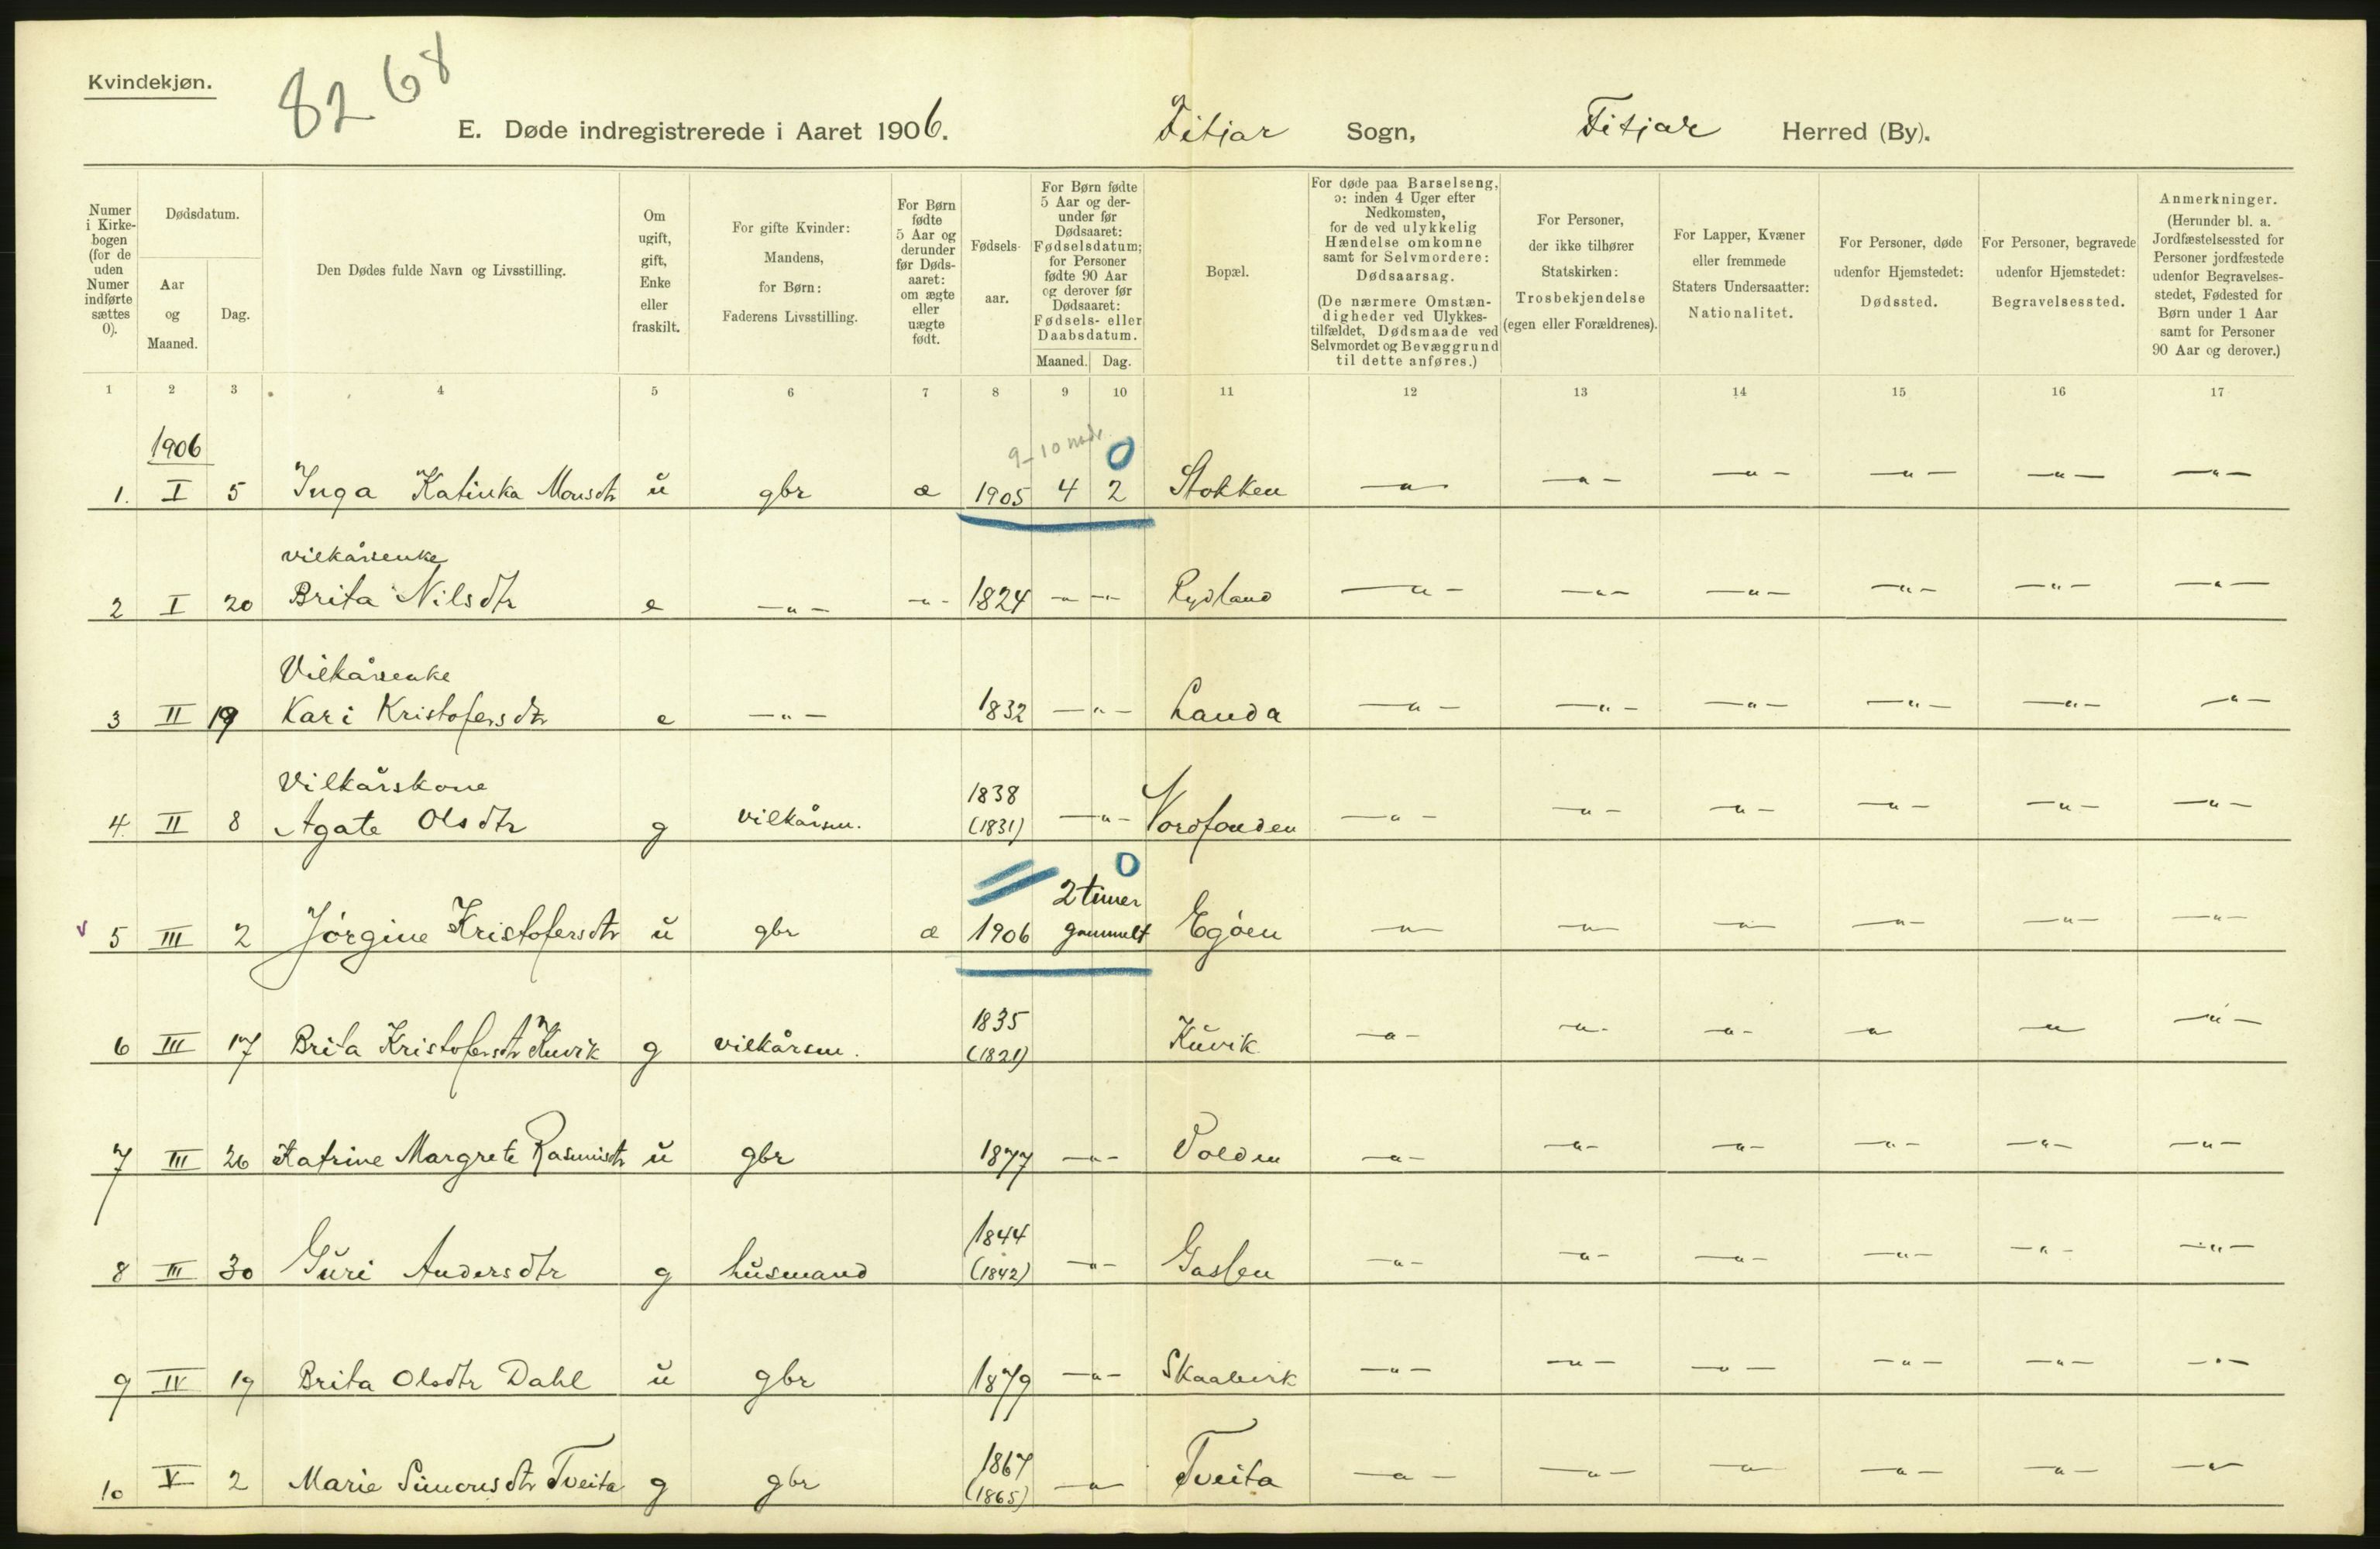 Kvindekjøn.
82 68
E. Døde indregistrerede i Aaret 1906. Fitjar Sogn, Fitjar Herred (By).
Numer i Kirkebogen (for de uden Numer indførte sættes 0).
Dødsdatum.
Aar og Maaned.
Dag.
Den Dødes fulde Navn og Livsstilling.
Om ugift, gift, Enke eller fraskilt.
For gifte Kvinder: Mandens, for Børn: Faderens Livsstilling.
For Børn fødte 5 Aar og derunder før Dødsaaret: om ægte eller uægte født.
Fødselsaar.
For Børn fødte 5 Aar og derunder før Dødsaaret: Fødselsdatum; for Personer fødte 90 Aar og derover før Dødsaaret: Fødsels- eller Daabsdatum.
Maaned. Dag.
Bopæl.
For døde paa Barselseng, ɔ: inden 4 Uger efter Nedkomsten, for de ved ulykkelig Hændelse omkomne samt for Selvmordere: Dødsaarsag.
(De nærmere Omstændigheder ved Ulykkestilfældet, Dødsmaade ved Selvmordet og Bevæggrund til dette anføres.)
For Personer, der ikke tilhører Statskirken: Trosbekjendelse (egen eller Forældrenes).
For Lapper, Kvæner eller fremmede Staters Undersaatter: Nationalitet.
For Personer, døde udenfor Hjemstedet: Dødssted.
For Personer, begravede udenfor Hjemstedet: Begravelsessted.
Anmerkninger.
(Herunder bl. a. Jordfæstelsessted for Personer jordfæstede udenfor Begravelsesstedet, Fødested for Børn under 1 Aar samt for Personer 90 Aar og derover.)
1 2 3 4 5 6 7 8 9 10 11 12 13 14 15 16 17
1906
9-10 mdr. 0
1. I 5 Inga Katinka Monsdtr u gbr æ 1905 4 2 Stokken —"— —"— —"— —"— —"— —"—
vilkårsenke
2 I 20 Brita Nilsdtr e —"— —"— 1824 —"— Rydland —"— —"— —"— —"— —"— —"—
Vilkårsenke
3 II 19 Kari Kristofersdtr e —"— 1832 —"— Landa —"— —"— —"— —"— —"— —"—
Vilkårskone 1838
4. II 8 Agate Olsdtr g vilkårsm. (1831) —"— —"— —"— —"— —"— —"— —"—
0
2 timer
v 5 III 2 Jörgine Kristofersdtr u gbr æ 1906 gammelt Egöen —"— —"— —"— —"— —"— —"—
1835
6 III 17 Brita Kristofersdtr Kuvik g vilkårsm. (1821) Kuvik —"— —"— —"— —"— —"— —"—
7 III 26 Katrine Margrete Rasmusdtr u gbr 1877 —"— Volden —"— —"— —"— —"— —"— —"—
1844
8 III 30 Guri Andersdtr g husmand (1842) —"— —"— —"— —"— —"— —"— —"—
9 IV 19 Brita Olsdtr Dahl u gbr 1879 —"— Skaalevik —"— —"— —"— —"— —"— —"—
1867
10 V 2 Marie Simonsdtr Tveita g gbr (1865) —"— Tveita —"— —"— —"— —"— —"— —"—